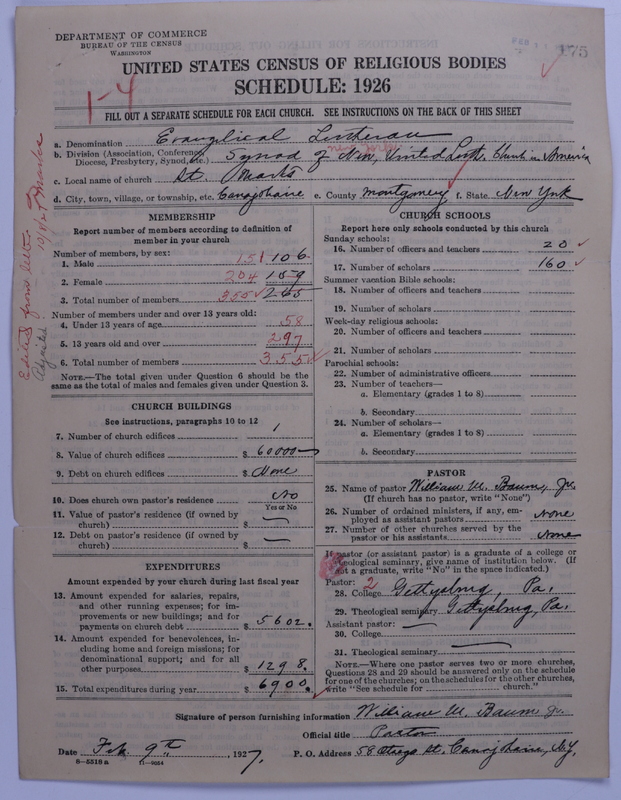 DEPARTMENT OF COMMERCE
BUREAU OF THE CENSUS
WASHINGTON
FEB 11
175
UNITED STATES CENSUS OF RELIGIOUS BODIES
SCHEDULE: 1926
1-4
FILL OUT A SEPARATE SCHEDULE FOR EACH CHURCH. SEE INSTRUCTIONS ON THE BACK OF THIS SHEET
a. Denomination Evangelical Lutheran
b. Division (Association, Conference, Diocese, Presbytery, Synod, etc.) Synod of New York, United Luth. Church in America
c. Local name of church St. Marks
d. City, town, village, or township, etc. Canajoharie e. County Montgomery f. State New York
Edited from letter
Adjusted
MEMBERSHIP
Report number of members according to definition of
member in your church
Number of members, by sex:
1. Male 151 106
2. Female 204 159
3. Total number of members 355 265
Number of members under and over 13 years old:
4. Under 13 years of age 58
5. 13 years old and over 297
6. Total number of members 355
NOTE.—The total given under Question 6 should be
same as the total of males and females given under Question 3.
CHURCH BUILDINGS
See instructions, paragraphs 10 to 12
7. Number of church edifices 1
8. Value of church edifices $ 60000
9. Debt on church edifices $ None
10. Does church own pastor's residence No
Yes or No
11. Value of pastor's residence (if owned by
church) $ —
12. Debt on pastor's residence (if owned by
church) $ —
EXPENDITURES
Amount expended by your church during last fiscal year
13. Amount expended for salaries, repairs,
and other running expenses; for im-
provements or new buildings; and for
payments on church debt $ 5602.
14. Amount expended for benevolences, in-
cluding home and foreign missions; for
denominational support; and for all
other purposes $ 1298.
15. Total expenditures during year $ 6900.
CHURCH SCHOOLS
Report here only schools conducted by this church
Sunday schools:
16. Number of officers and teachers 20
17. Number of scholars 160
Summer vacation Bible schools:
18. Number of officers and teachers
19. Number of scholars
Week-day religious schools:
20. Number of officers and teachers
21. Number of scholars
Parochial schools:
22. Number of administrative officers
23. Number of teachers—
a. Elementary (grades 1 to 8)
b. Secondary
24. Number of scholars—
a. Elementary (grades 1 to 8)
b. Secondary
PASTOR
25. Name of pastor William M. Baum, Jr.
(If church has no pastor, write "None")
26. Number of ordained ministers, if any, em-
ployed as assistant pastors None
27. Number of other churches served by the
pastor or his assistants None
If pastor (or assistant pastor) is a graduate of a college or
theological seminary, give name of institution below. (If
not a graduate, write "No" in the space indicated.)
Pastor: 2
28. College Gettysburg, Pa.
29. Theological seminary Gettysburg, Pa.
Assistant pastor: —
30. College
31. Theological seminary —
NOTE.—Where one pastor serves two or more churches,
Questions 28 and 29 should be answered only on the schedule
for one of the churches; on the schedules for the other churches,
write "See schedule for church."
Signature of person furnishing information William M. Baum Jr.
Official title Pastor
Date Feb. 9th, 1927.
P. O. Address 58 Otsego St. Canajoharie, N.Y.
8-5518 a 11-9064